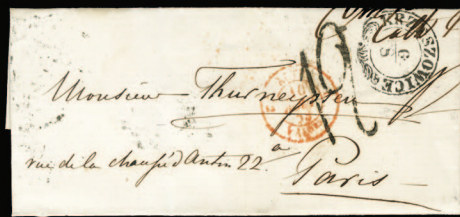 KRZESZOWICE
6
5
12
Monsieur Thurneyssen
rue de la chaussée d'Antin 22.
à
Paris